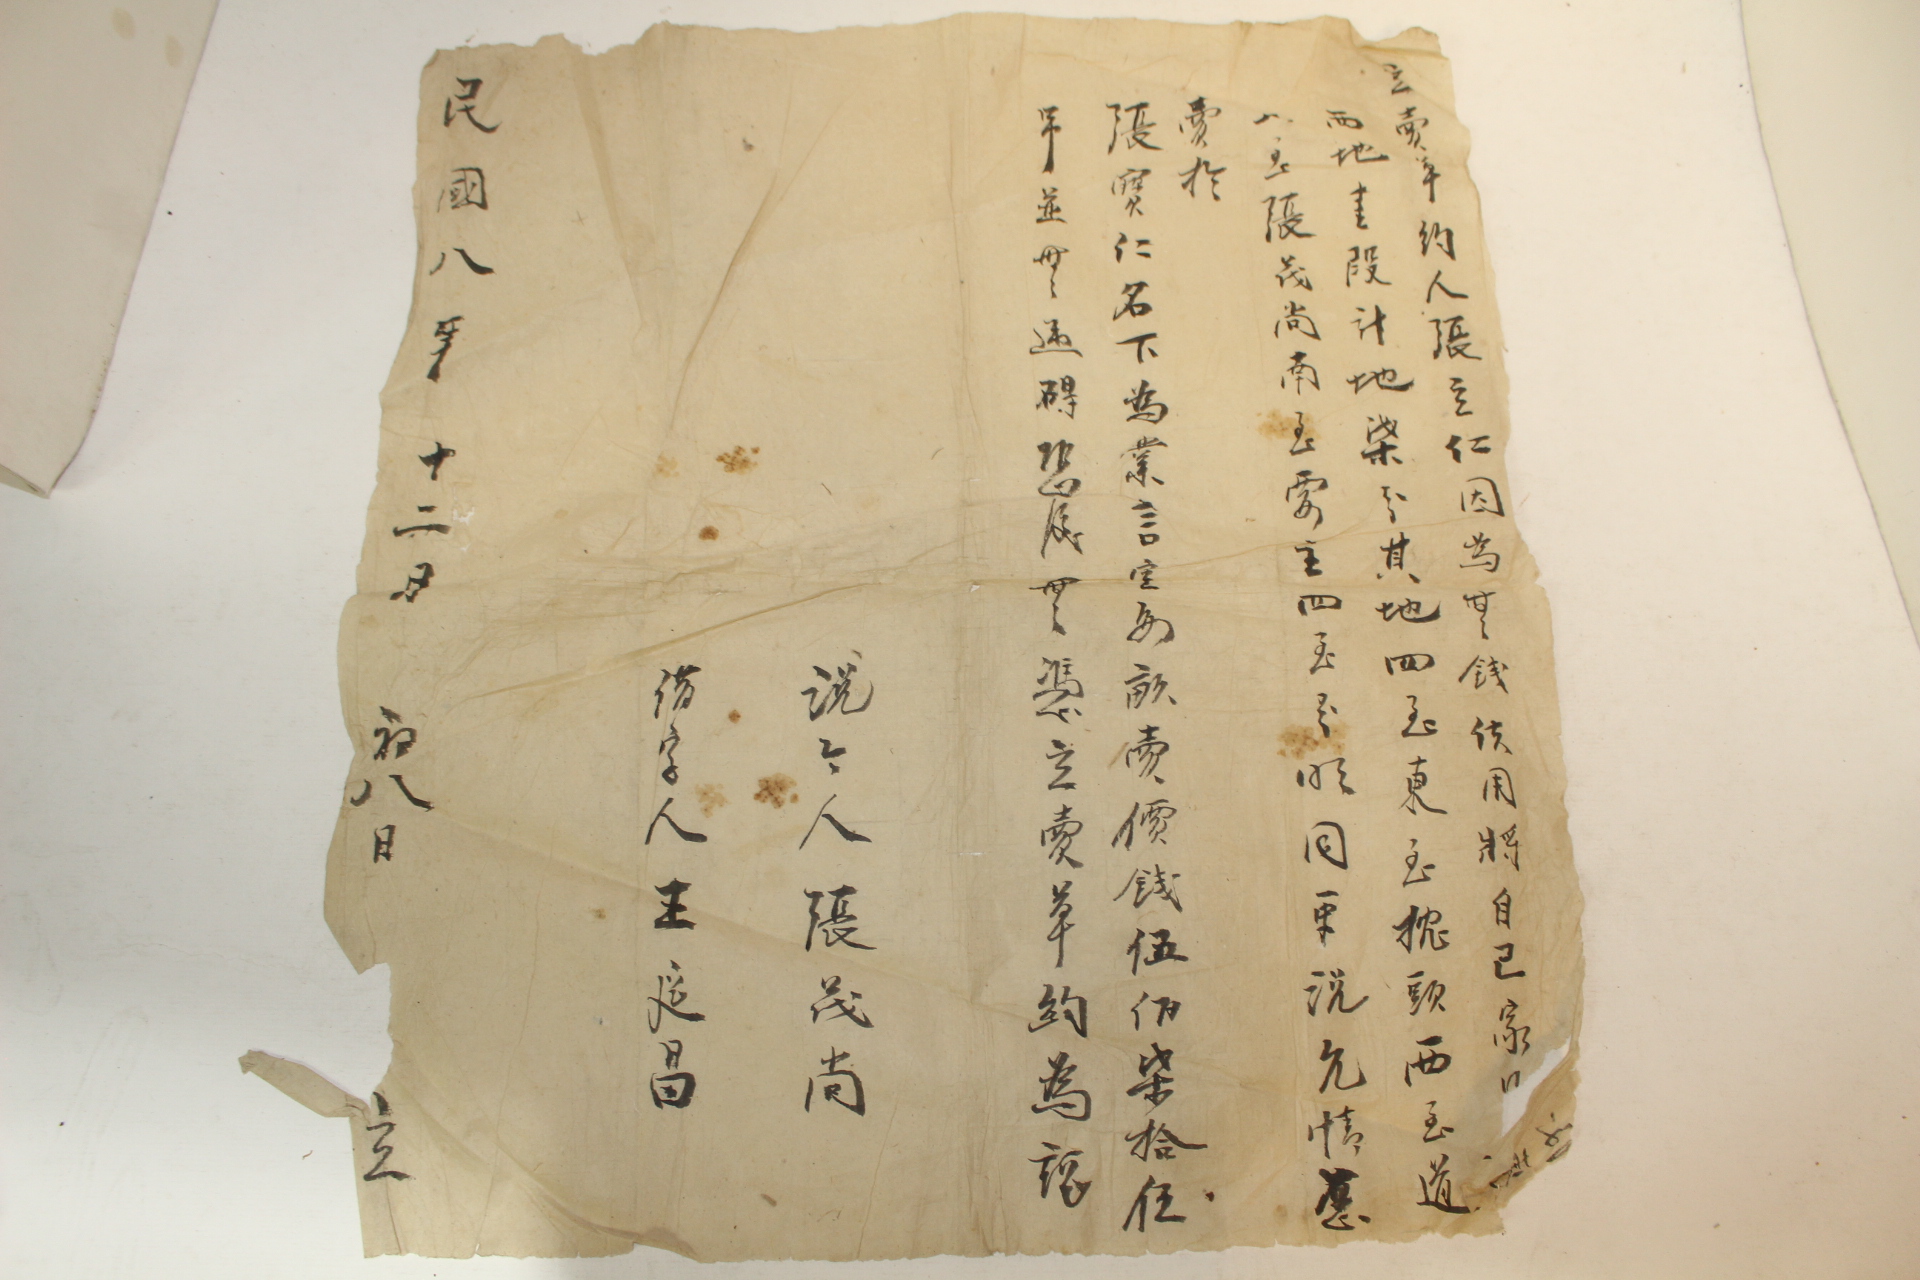 立賣草約人張立仁因為無錢使用將自己家口
西地壹段計地柒分其地四至東至枕頭西至道
北至張茂尚南至買主四至分明同眾說允情愿
賣於
張寶仁名下為業言定每畝賣價錢伍佰柒拾伍
吊並無違碍恐後無憑立賣草約為証
說合人張茂尚
借字人王廷昌
民國八年十二月初八日立